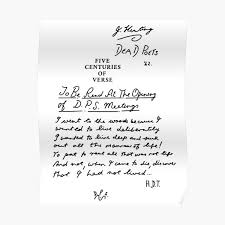 J. Keating
DeaD Poets
FIVE
CENTURIES
OF
VERSE
To Be Read At The Opening
of D.P.S. Meetings
I went to the woods because I
wanted to live deliberately
I wanted to live deep and suck
out all the marrow of life!
To put to rout all that was not life
And not, when I came to die, discover
that I had not lived...
H.D.T.